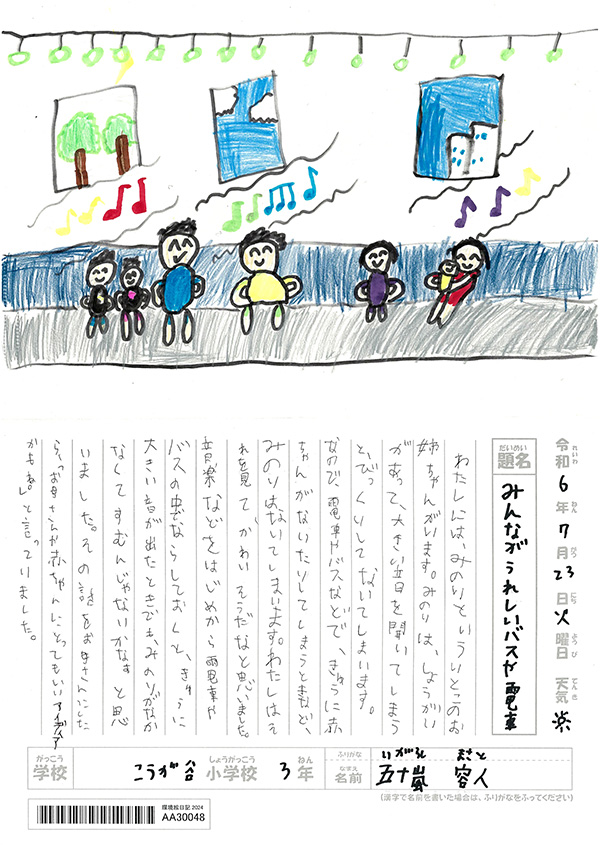 令和6年7月23日火曜日 天気
れいわ ねん がつ にち ようび てんき
だいめい
題名
みんながうれしいバスや電車
わたしには、みのりというひとつのお
姉ちゃんがいます。みのりは、しょうがい
があって、大きい音を聞いてしまう
と、びっくりしてないてしまいます。
なので、電車やバスなどで、きゅうに赤
ちゃんがないたりしてしまうときなど、
みのりはないてしまいます。わたしはそ
れを見て、かわいそうだなと思いました。
音楽などをはじめから電車や
バスの中でならしておくと、きゅうに
大きい音が出たときでも、みのりがなか
なくてすむんじゃないかなぁと思
いました。その話をお母さんにした
ら、「お母さんや赤ちゃんにとってもいいアイディア
かもね。」と言っていました。
がっこう しょうがっこう ねん
学校 こうが谷 小学校 3年
ふりがな いがらし まさと
なまえ
名前 五十嵐 容人
(漢字で名前を書いた場合は、ふりがなをふってください)
環境絵日記2024
AA30048